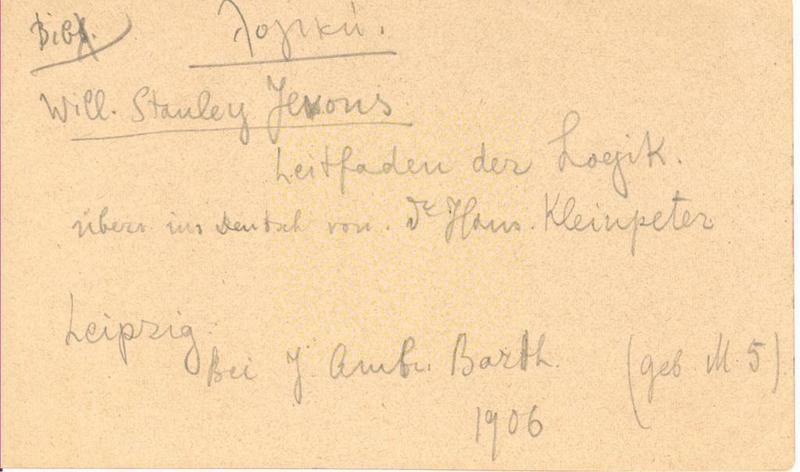 Bibl. Λογική.
Will. Stanley Jevons
Leitfaden der Logik.
übers ins Deutsch von. Dr Hans. Kleinpeter
Leipzig.
Bei J. Amb. Barth. (geb M 5)
1906